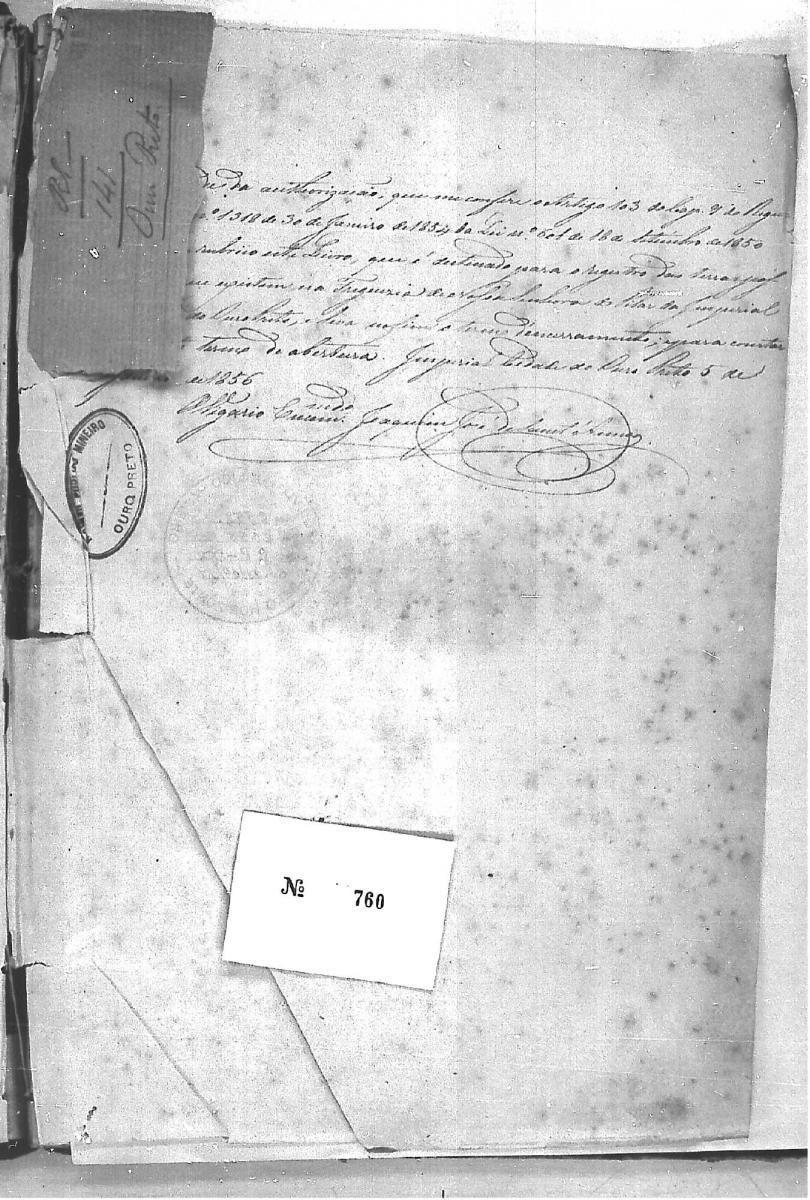 RP
141
Ouro Preto
de da authorização, que me confere o Artigo 103 do Cap. 9 do Regu
nº 1318 de 30 de Janeiro de 1854, da Lei nº 601 de 18 de Setembro de 1850
rubrico este Livro, que é destinado para o registro das terras pos
ue existem na Freguezia de Nossa Senhora do Pilar da Imperial
do Ouro Preto, e leva no fim o termo de encerramento; e para constar
termo de abertura. Imperial Cidade do Ouro Preto 5 de
de 1856
O Vigario Encommdo. Joaquim José de
MINEIRO
OURO PRETO
Nº 760